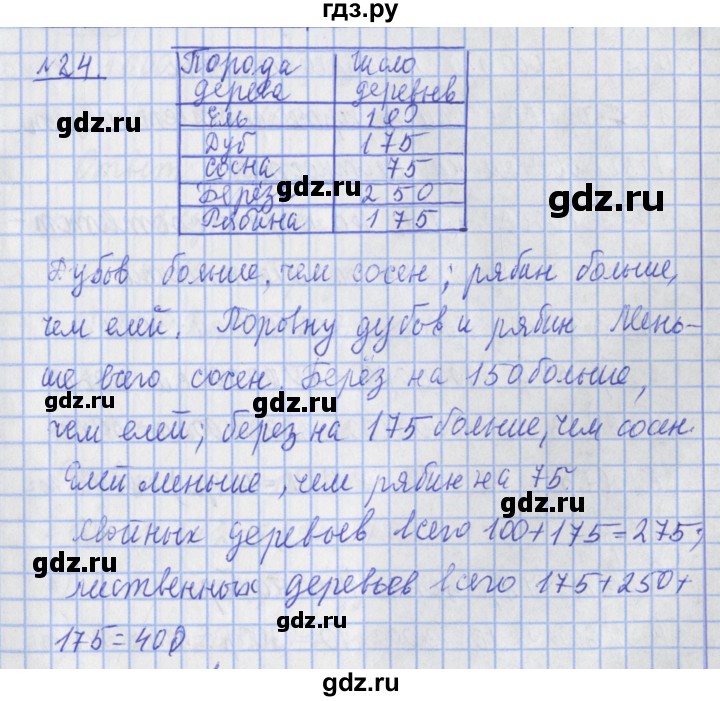 гдз.ру
№24.
Порода дерева Число деревьев
Ель 100
Дуб 175
Сосна 75
Берёз 250
Рябина 175
gdz.ru
gdz.ru
gdz.ru
Дубов больше, чем сосен; рябин больше,
чем елей. Поровну дубов и рябин Мень-
ше всего сосен. Берёз на 150 больше,
gdz.ru
gdz.ru
чем елей; берез на 175 больше, чем сосен.
Елей меньше, чем рябин на 75.
gdz.ru
Хвойных деревьев всего 100+175=275;
gdz.ru
лиственных деревьев всего 175+250+
gdz.ru
175=400
gdz.ru
gdz.ru